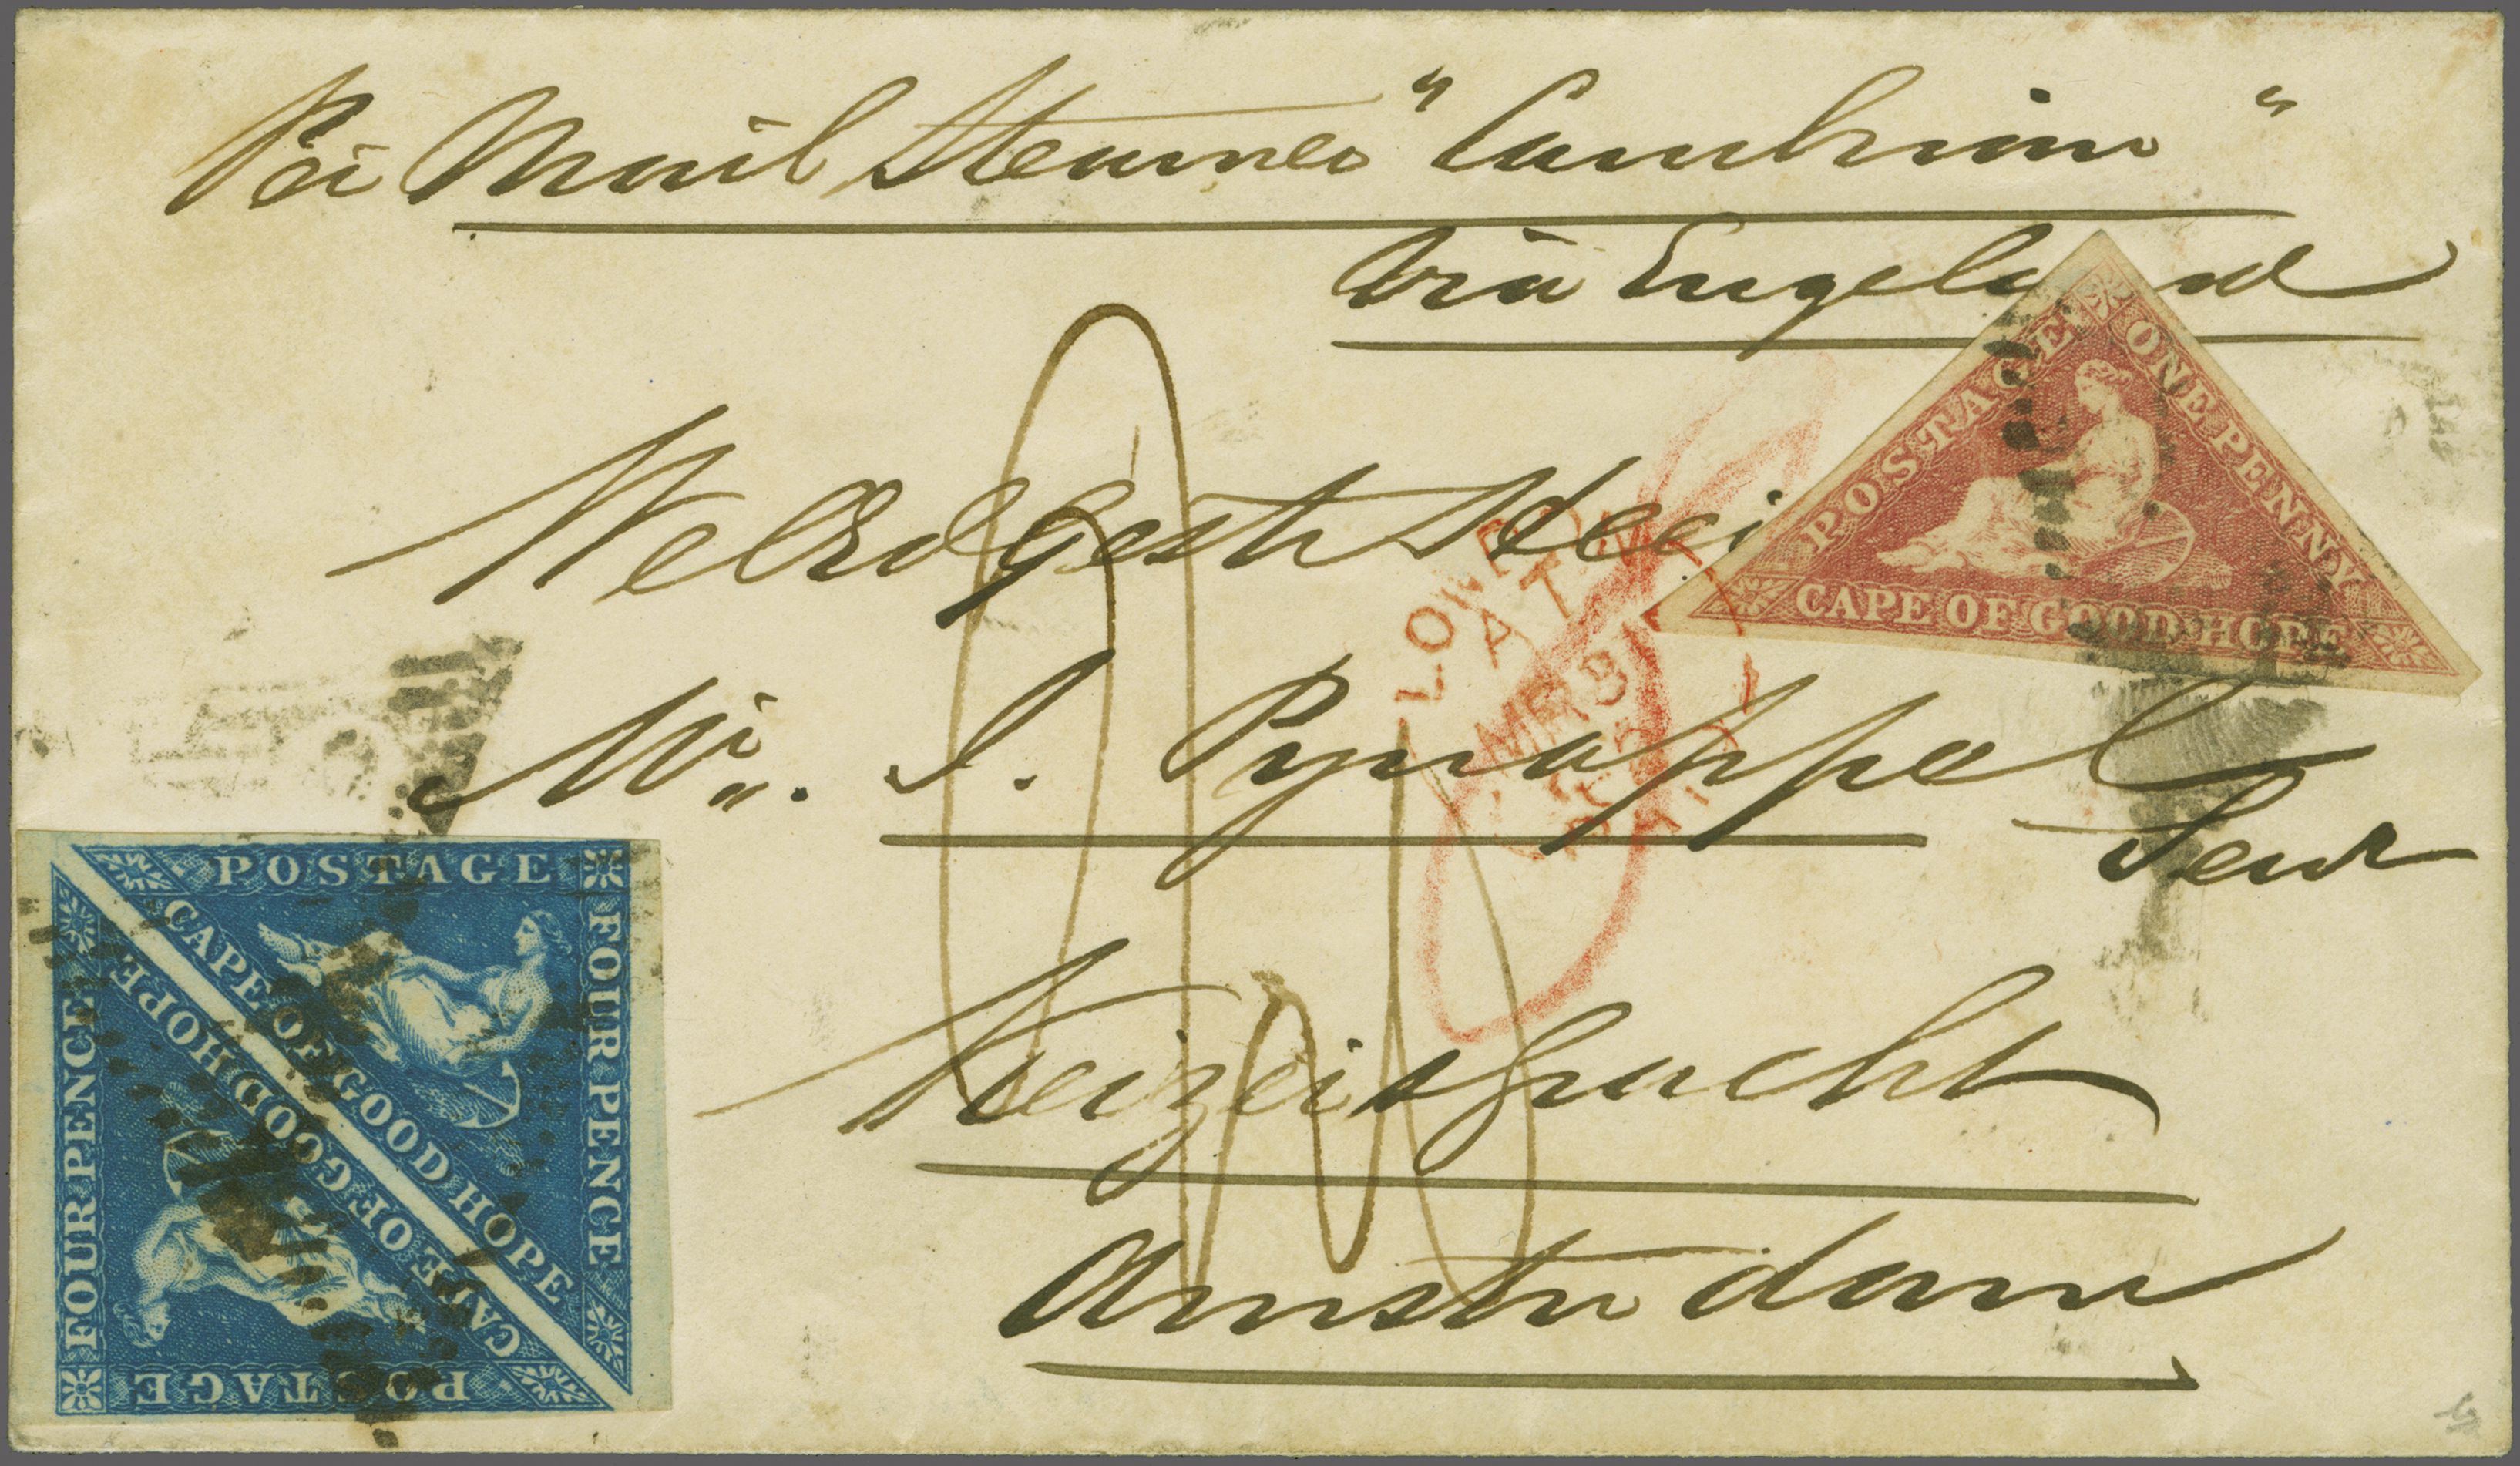 Per Mail Steamer "Cambrian"
Via Engeland
WelEdGestr Heer
Mr. I. Pynappel
Senr
Keizersgracht
Amsterdam
POSTAGE
ONE PENNY
CAPE OF GOOD HOPE
LONDON
MR 8
PAID
POSTAGE
FOUR PENCE
CAPE OF GOOD HOPE
CAPE OF GOOD HOPE
FOUR PENCE
POSTAGE